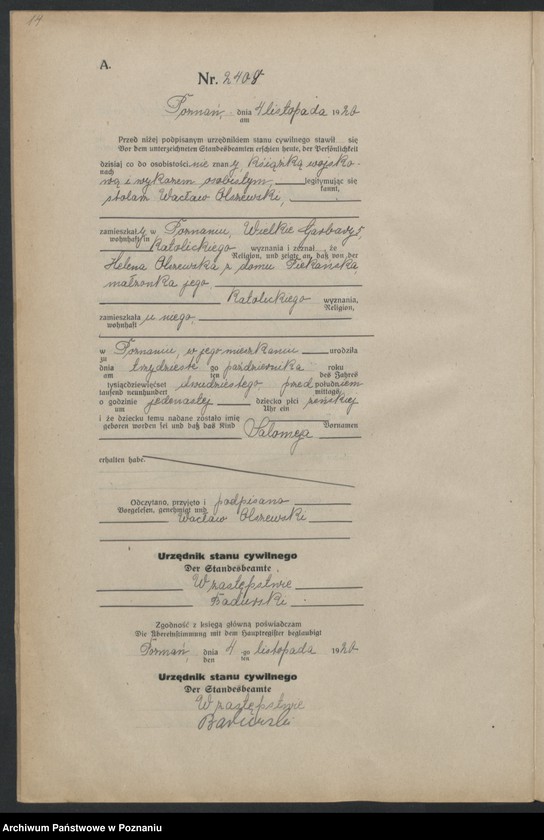 14
A.
Nr. 2408
Poznań, dnia 4 listopada 1920
am
Przed niżej podpisanym urzędnikiem stanu cywilnego stawił się
Vor dem unterzeichneten Standesbeamten erschien heute, der Persönlichkeit
dzisiaj co do osobistości nie znany książką wojsko-
nach
wą i wykazem osobistym, legitymując się
kannt,
stolarz Wacław Olszewski,
zamieszkały w Poznaniu, Wielkie Garbary 5,
wohnhaft in
katolickiego wyznania i zeznał że
Religion, und zeigte an, daß von der
Helena Olszewska z domu Piekarska,
małżonka jego,
katolickiego wyznania,
Religion,
zamieszkała u niego,
wohnhaft
w Poznaniu, w jego mieszkaniu urodziła
zu
dnia trzydzieste go października roku
am ten des Jahres
tysiącdziewięćset dwudziestego przed południem
tausend neunhundert mittags
o godzinie jedenastej dziecko płci żeńskiej
um Uhr ein
i że dziecku temu nadane zostało imię
geboren worden sei und daß das Kind Salomeja Vornamen
erhalten habe.
Odczytano, przyjęto i podpisano
Vorgelesen, genehmigt und
Wacław Olszewski
Urzędnik stanu cywilnego
Der Standesbeamte
W zastępstwie
Zgodność z księgą główną poświadczam
Die Übereinstimmung mit dem Hauptregister beglaubigt
Poznań dnia 4 -go listopada 1920
den ten
Urzędnik stanu cywilnego
Der Standesbeamte
W zastępstwie
Archiwum Państwowe w Poznaniu